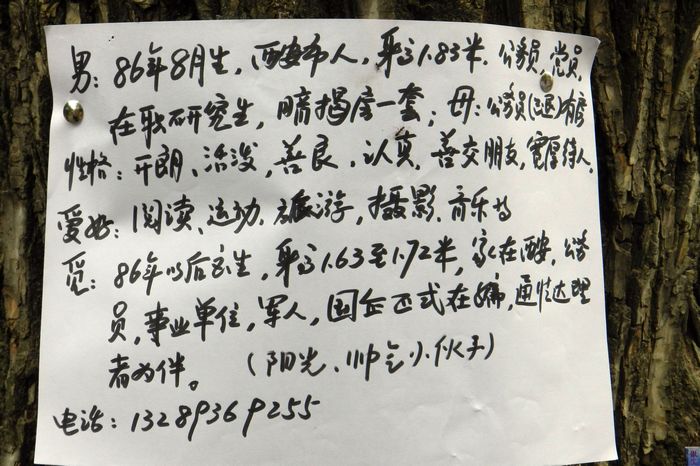 男：86年8月生，西安市人，身高1.83米，公务员，党员，
在职研究生，有按揭房一套；母：公务员(已退)有房
性格：开朗、活泼，善良、认真，善交朋友，宽厚待人，
爱好：阅读、运动、旅游，摄影、音乐等
觅：86年以后出生，身高1.63至1.72米，家在西安，公务
员，事业单位，军人，国企正式在编，通情达理
者为伴。（阳光、帅气小伙子）
电话：13289369255